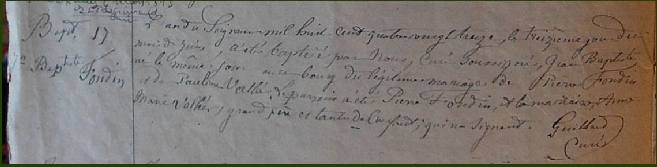 Bapt. 17
Jn Baptiste
Fondin
L'an du Seigneur mil huit cent quatre vingt treize, le treizième jour du
mois de juin, a été baptisé par Nous, Curé soussigné, Jean Baptiste
né le même jour en ce bourg du légitime mariage de Pierre Fondin
et de Pauline Vallée. Le parrain a été Pierre Fondin, et la marraine Anne
Marie Vallée, grand père et tante de l'enfant, qui ne signent. Guillard
Curé